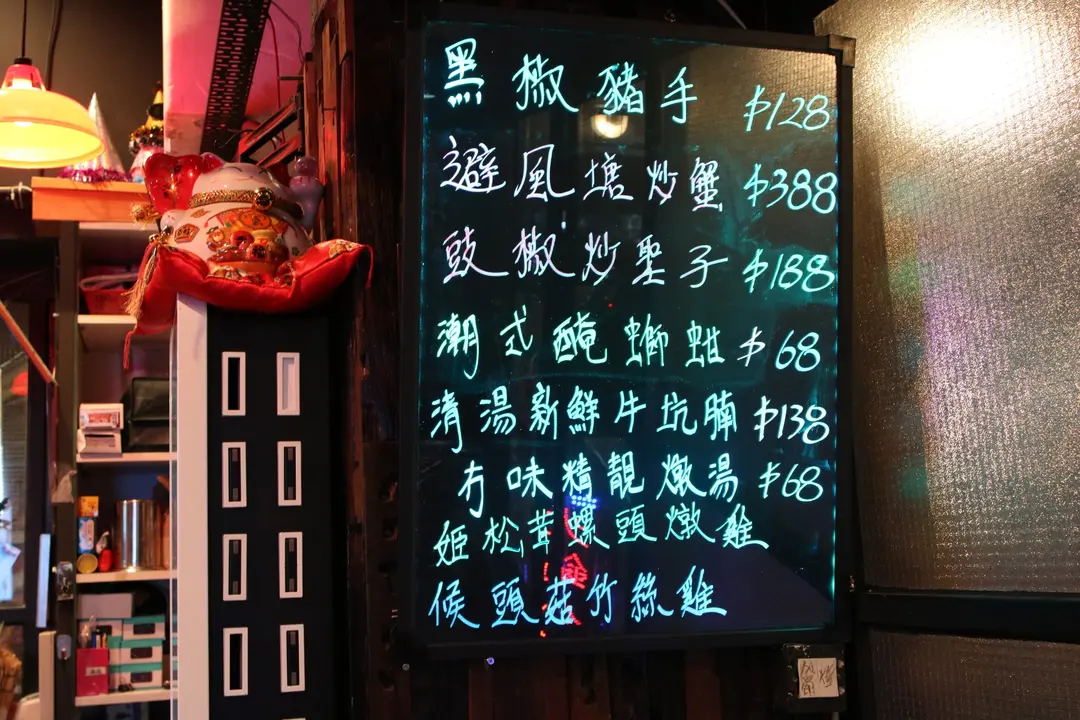 黑椒豬手 $128
避風塘炒蟹 $388
豉椒炒聖子 $188
潮式醃螄蚶 $68
清湯新鮮牛坑腩 $138
冇味精靚燉湯 $68
姬松茸螺頭燉雞
候頭菇竹絲雞